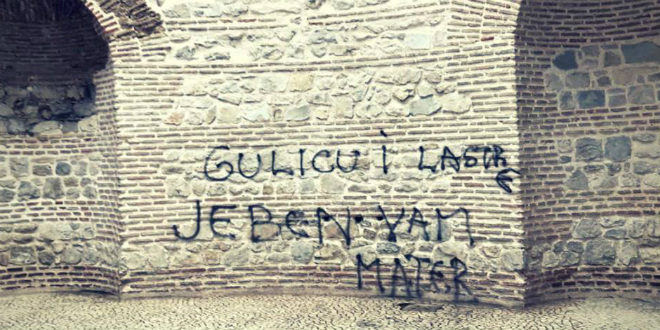 GULICU i LASTRE
JEBEN VAM
MATER